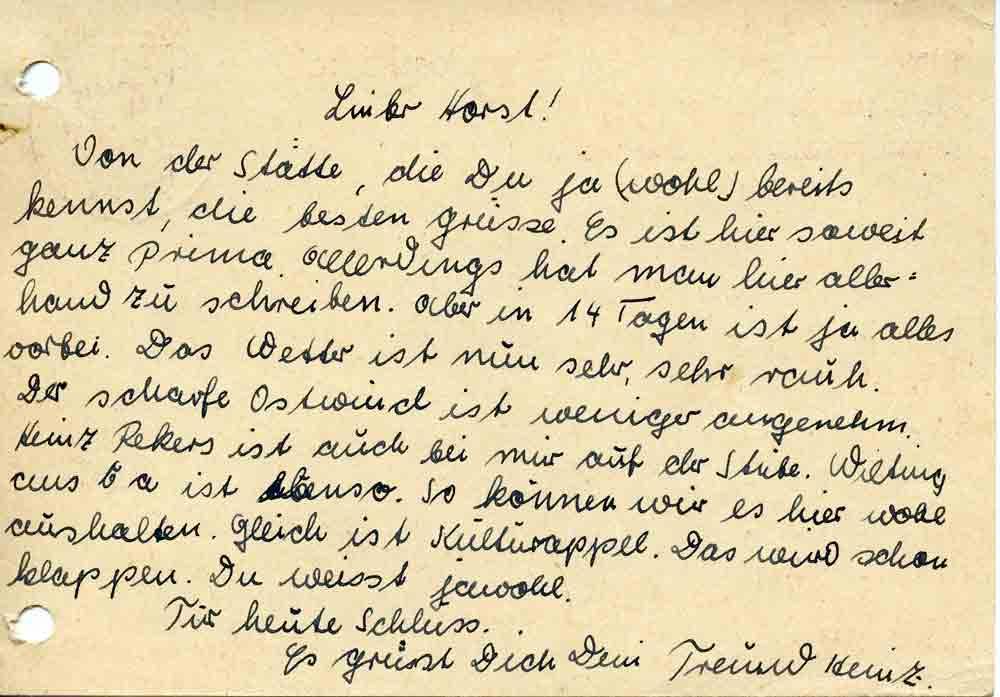 Lieber Horst!
Von der Stätte, die Du ja (wohl) bereits
kennst, die besten Grüsse. Es ist hier soweit
ganz prima. Allerdings hat man hier aller=
hand zu schreiben. Aber in 14 Tagen ist ja alles
vorbei. Das Wetter ist nun sehr, sehr rauh.
Der scharfe Ostwind ist weniger angenehm.
Heinz Rekers ist auch bei mir auf der Stube. Wilting
aus 6a ist ebenso. So können wir es hier wohl
aushalten. Gleich ist Kulturappel. Das wird schon
klappen. Du weisst jawohl.
Für heute Schluss.
Es grüsst Dich Dein Freund Heinz.